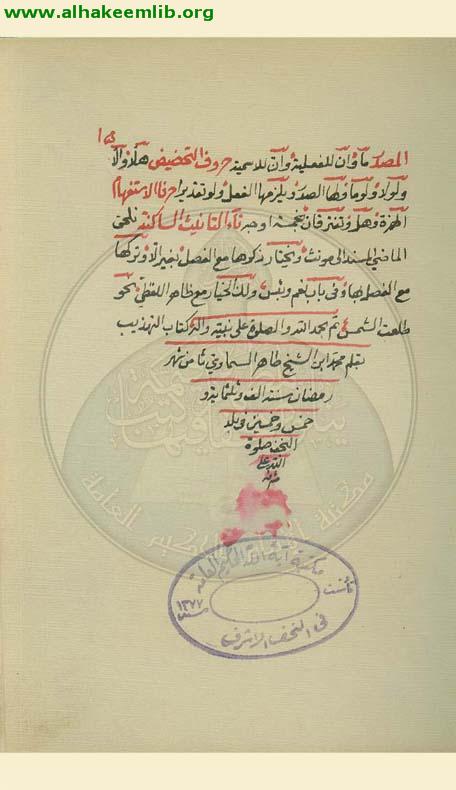 www.alhakeemlib.org
المصدر ما وان للفعلية وان للاسمية حروف التحضيض هلا والا
ولولا ولوما ولها الصدر ويلزمها الفعل ولو تقديرا حرفا الاستفهام
الهمزة وهل وتفترقان تاء التانيث الساكنة تلحق
الماضي لمسند الى مونث ويختار ذكرها مع الفصل بغير الا وتركها
مع الفصل بها وفي باب نعم وبئس ولك الخيار مع ظاهر اللفظي نحو
طلعت الشمس تم بحمد الله والصلوة على نبيه واله كتاب التهذيب
بقلم محمد ابن الشيخ طاهر السماوي ثامن شهر
رمضان سنة الف وثلثماية و
خمس وخمسين في بلد
النجف صلوة
الله على
مشرفه
مكتبة آية الله الحكيم العامة
تأسست
سنة ١٣٧٧
في النجف الاشرف